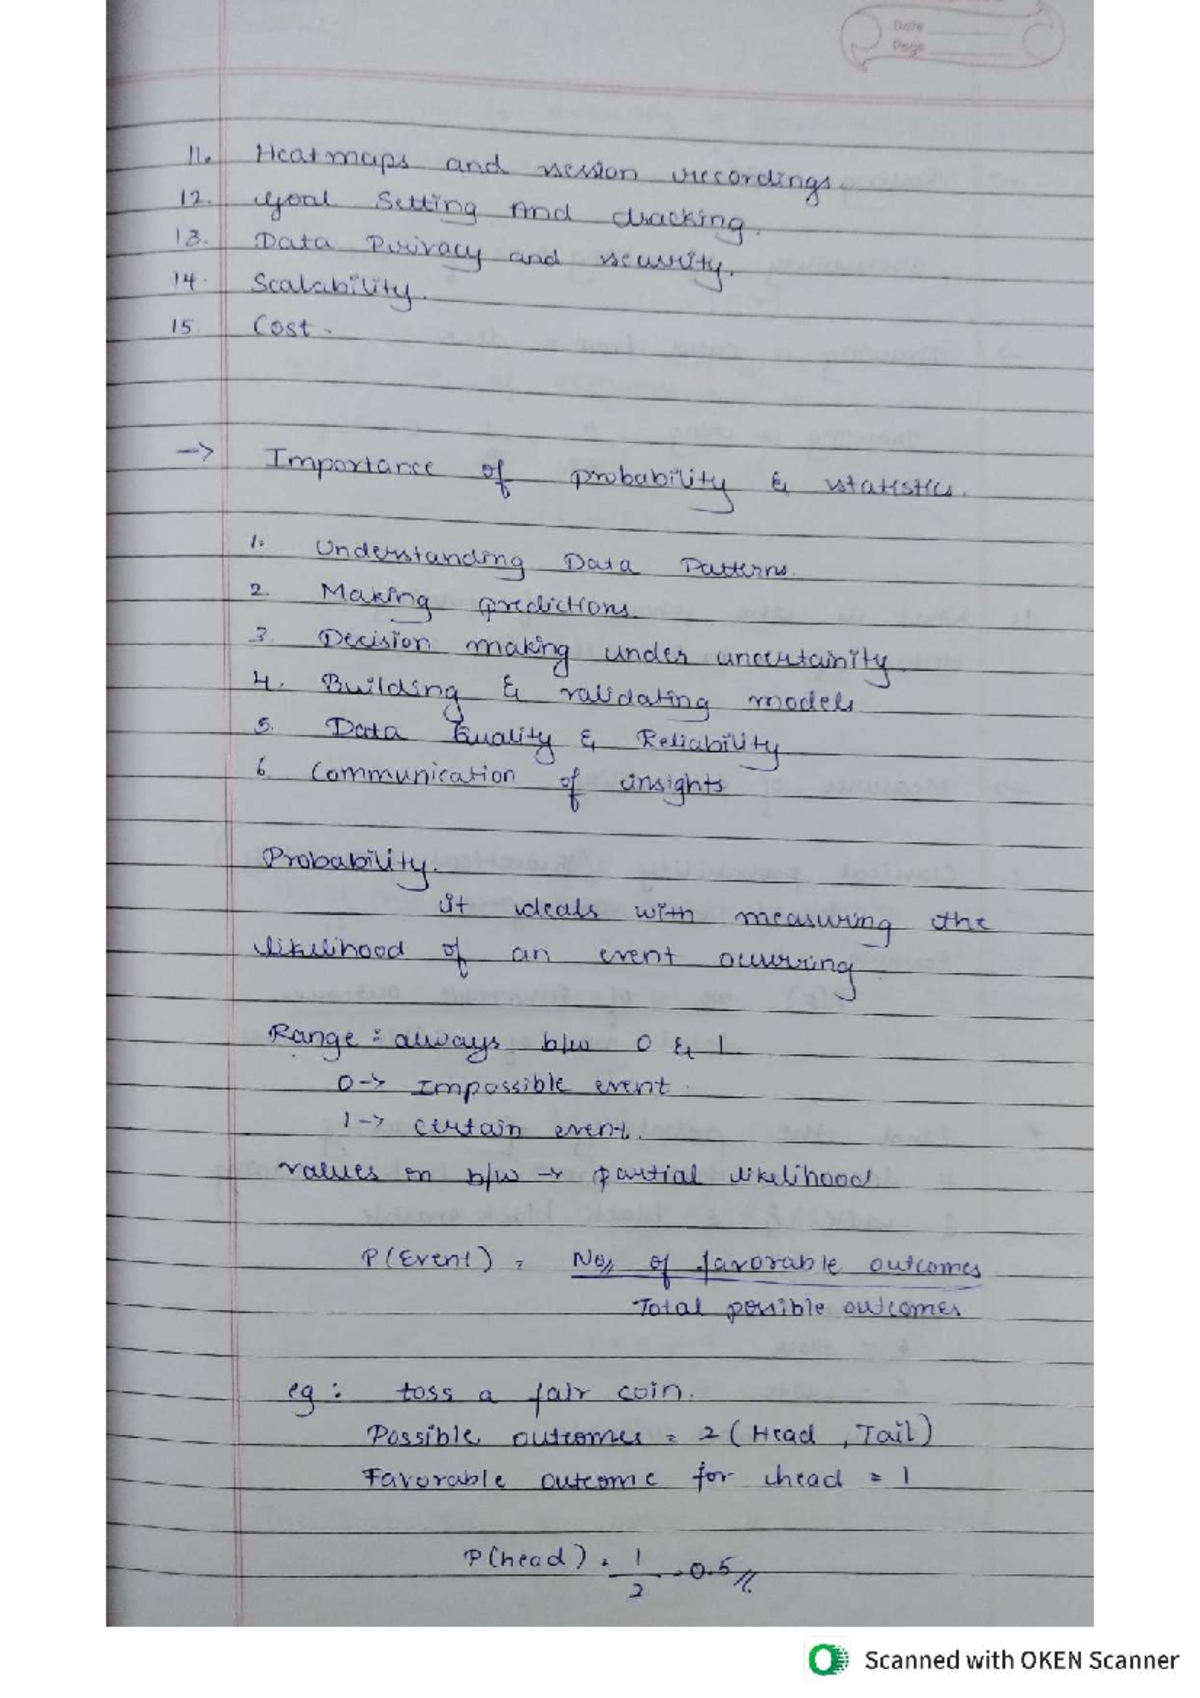 Date
Page
11. Heatmaps and session recordings.
12. Goal Setting And tracking.
13. Data Privacy and security.
14. Scalability.
15. Cost.
-> Importance of probability & statistics.
1. Understanding Data Patterns.
2. Making predictions.
3. Decision making under uncertainity.
4. Building & validating models
5. Data Quality & Reliability
6. Communication of insights
Probability.
It deals with measuring the
likelihood of an event occurring
Range : always b/w 0 & 1
0 -> Impossible event.
1 -> certain event.
values in b/w -> partial likelihood
P(Event) = No// of favorable outcomes
Total possible outcomes
eg : toss a fair coin.
Possible outcomes = 2 (Head, Tail)
Favorable outcome for head = 1
P(head) = 1/2 = 0.5//
Scanned with OKEN Scanner